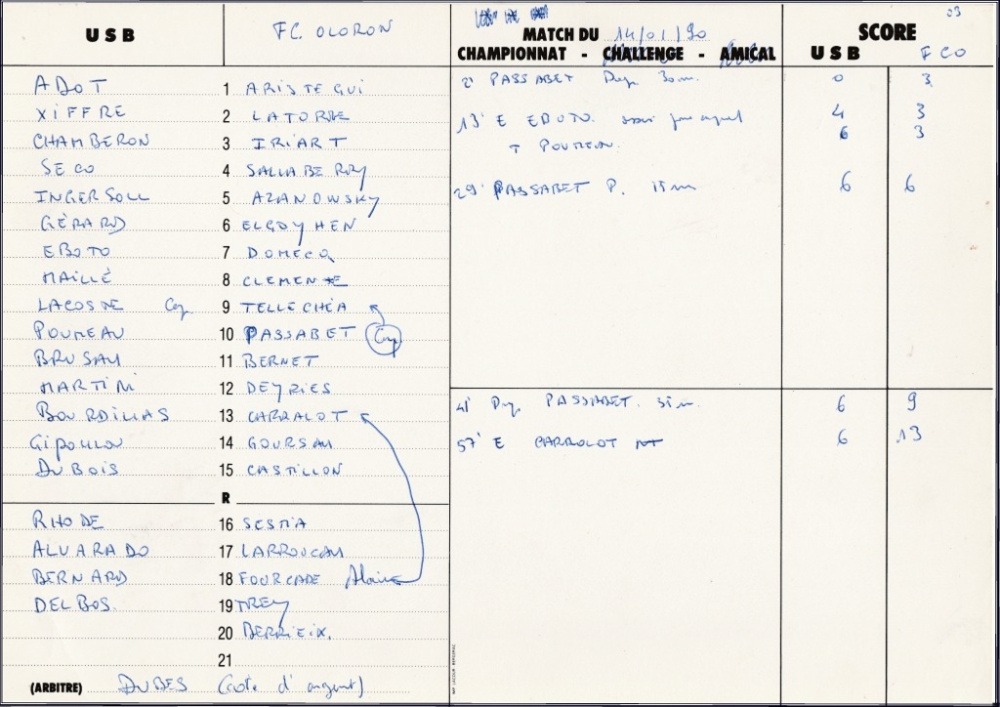 USB FC. OLORON MATCH DU 14/01/90 SCORE 03
CHAMPIONNAT - CHALLENGE - AMICAL USB FCO
ADOT 1 ARISTEGUI
XIFFRE 2 LATORRE
CHAMBERON 3 IRIART
SECO 4 SALLABERRY
INGERSOLL 5 AZANOWSKY
GÉRARD 6 ELGOYHEN
EBOTO 7 DOMECQ
MAILLÉ 8 CLEMENTE
LACOSTE Cap 9 TELLECHEA
POUMEAU 10 PASSABET Cap
BRUSAU 11 BERNET
MARTIN 12 DEYRIES
BOURDILLAS 13 CARRALOT
GIPOULOU 14 GOURSAU
DUBOIS 15 CASTILLON
R
RHODE 16 SESMA
ALVARADO 17 LARROUCAU
BERNARD 18 FOURCADE Alain
DELBOS. 19 TREY
20 BERRIEIX.
21
(ARBITRE) DUBES (cote d'argent)
2' PASSABET Drop 30m. 0 3
13' E EBOTO. 4 3
T POUMEAU. 6 3
29' PASSABET P. 15m 6 6
41' Drop PASSABET. 35m. 6 9
57' E CARROLOT NT 6 13